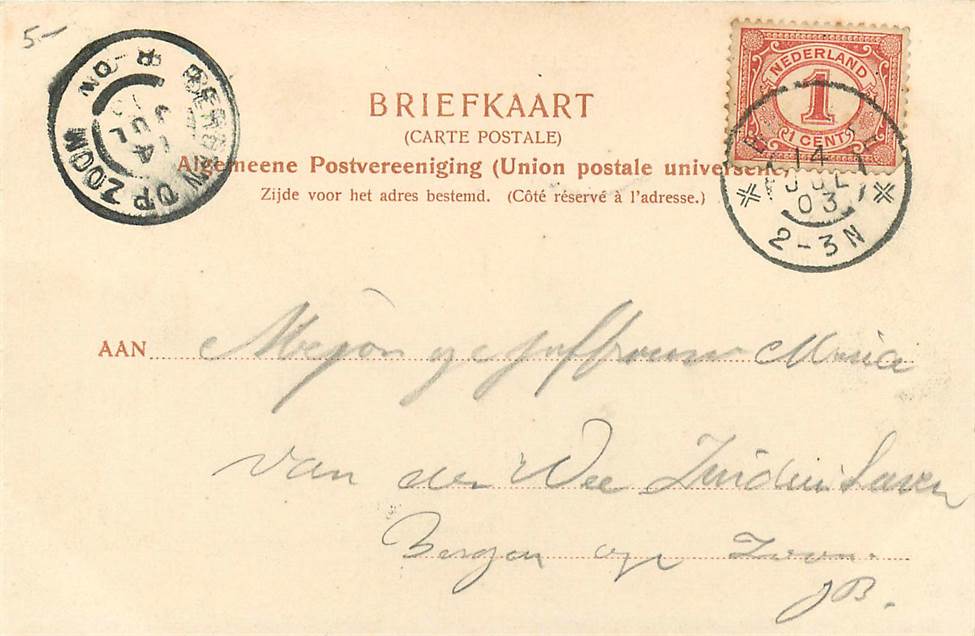 5-
BERGEN OP ZOOM
14 JUL 03
NEDERLAND
1
1 CENT
14
JUL
03
2-3N
BRIEFKAART
(CARTE POSTALE)
Algemeene Postvereeniging (Union postale universelle)
Zijde voor het adres bestemd. (Côté réservé à l'adresse.)
AAN Mejon Juffrouw Maria
van der Wee Zuidzijde Haven
Bergen op Zoom.
JB.